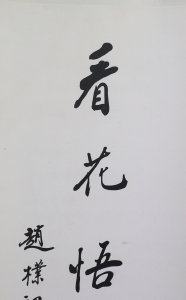 看花悟
趙樸